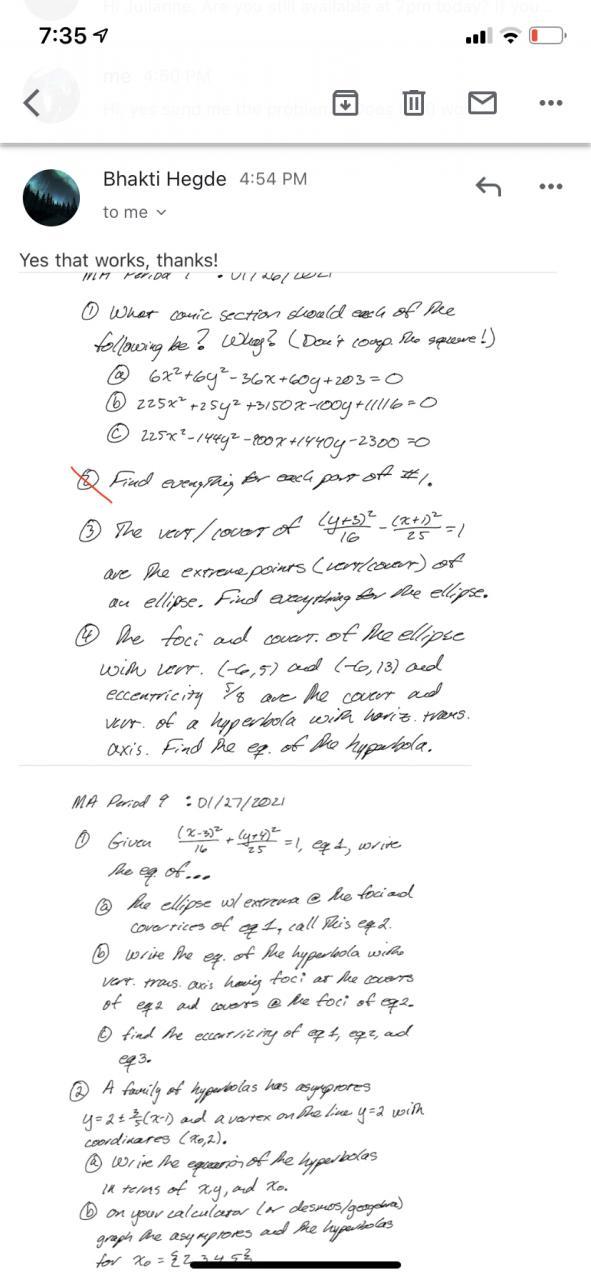 Hi Julianne, Are you still available at 7pm today? If you...
7:35
me 4:50 PM
Hi, yes send me the problem
Bhakti Hegde 4:54 PM
to me
Yes that works, thanks!
MA Period 1 • 01/26/2021
① What conic section should each of the
following be? Why? (Don't comp. the square!)
ⓐ 6x²+6y²-36x+60y+203=0
ⓑ 225x²+25y²+3150x-100y+11116=0
ⓒ 225x²-144y²-800x+1440y-2300=0
② Find everything for each part of #1.
③ The vert/covert of (y+3)²/16 - (x+1)²/25 = 1
are the extreme points (vert/covert) of
an ellipse. Find everything for the ellipse.
④ The foci and covert. of the ellipse
with vert. (-6,5) and (-6,13) and
eccentricity 5/8 are the covert and
vert. of a hyperbola with horiz. trans.
axis. Find the eq. of the hyperbola.
MA Period 9 : 01/27/2021
① Given (x-3)²/16 + (y+4)²/25 = 1, eq 1, write
the eq. of...
ⓐ the ellipse w/ extrema @ the foci and
covertices of eq 1, call this eq 2.
ⓑ write the eq. of the hyperbola with
vert. trans. axis having foci at the coverts
of eq2 and coverts @ the foci of eq2.
ⓒ find the eccentricity of eq 1, eq2, and
eq3.
② A family of hyperbolas has asymptotes
y=2±3/5(x-1) and a vertex on the line y=2 with
coordinates (x₀,2).
ⓐ Write the equation of the hyperbolas
in terms of x,y, and x₀.
ⓑ on your calculator (or desmos/geogebra)
graph the asymptotes and the hyperbolas
for x₀ = {2,3,4,5}